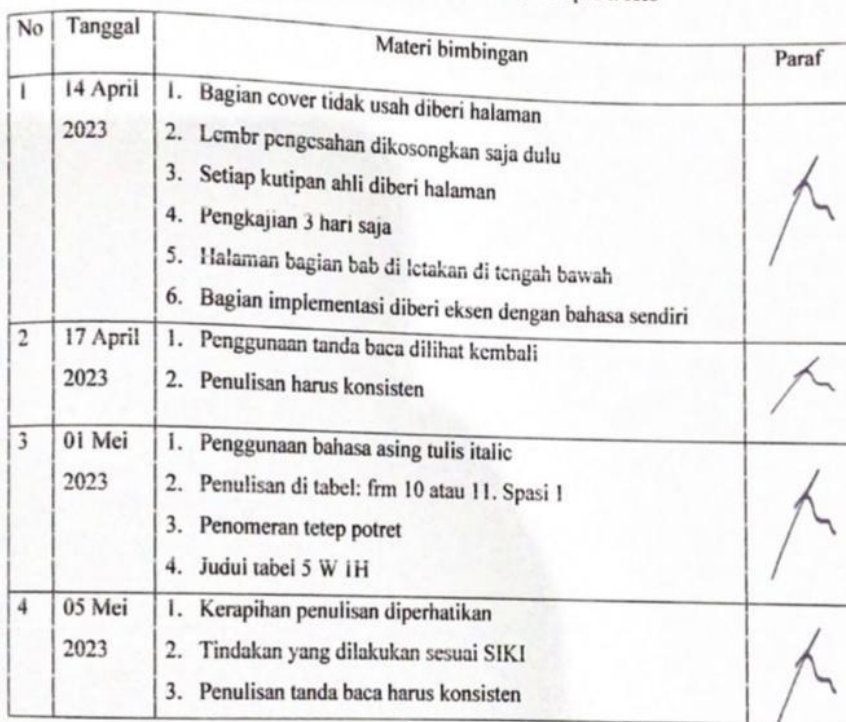 No Tanggal Materi bimbingan Paraf
1 14 April 2023
1. Bagian cover tidak usah diberi halaman
2. Lembr pengesahan dikosongkan saja dulu
3. Setiap kutipan ahli diberi halaman
4. Pengkajian 3 hari saja
5. Halaman bagian bab di letakan di tengah bawah
6. Bagian implementasi diberi eksen dengan bahasa sendiri
2 17 April 2023
1. Penggunaan tanda baca dilihat kembali
2. Penulisan harus konsisten
3 01 Mei 2023
1. Penggunaan bahasa asing tulis italic
2. Penulisan di tabel: frm 10 atau 11. Spasi 1
3. Penomeran tetep potret
4. Judul tabel 5 W 1H
4 05 Mei 2023
1. Kerapihan penulisan diperhatikan
2. Tindakan yang dilakukan sesuai SIKI
3. Penulisan tanda baca harus konsisten